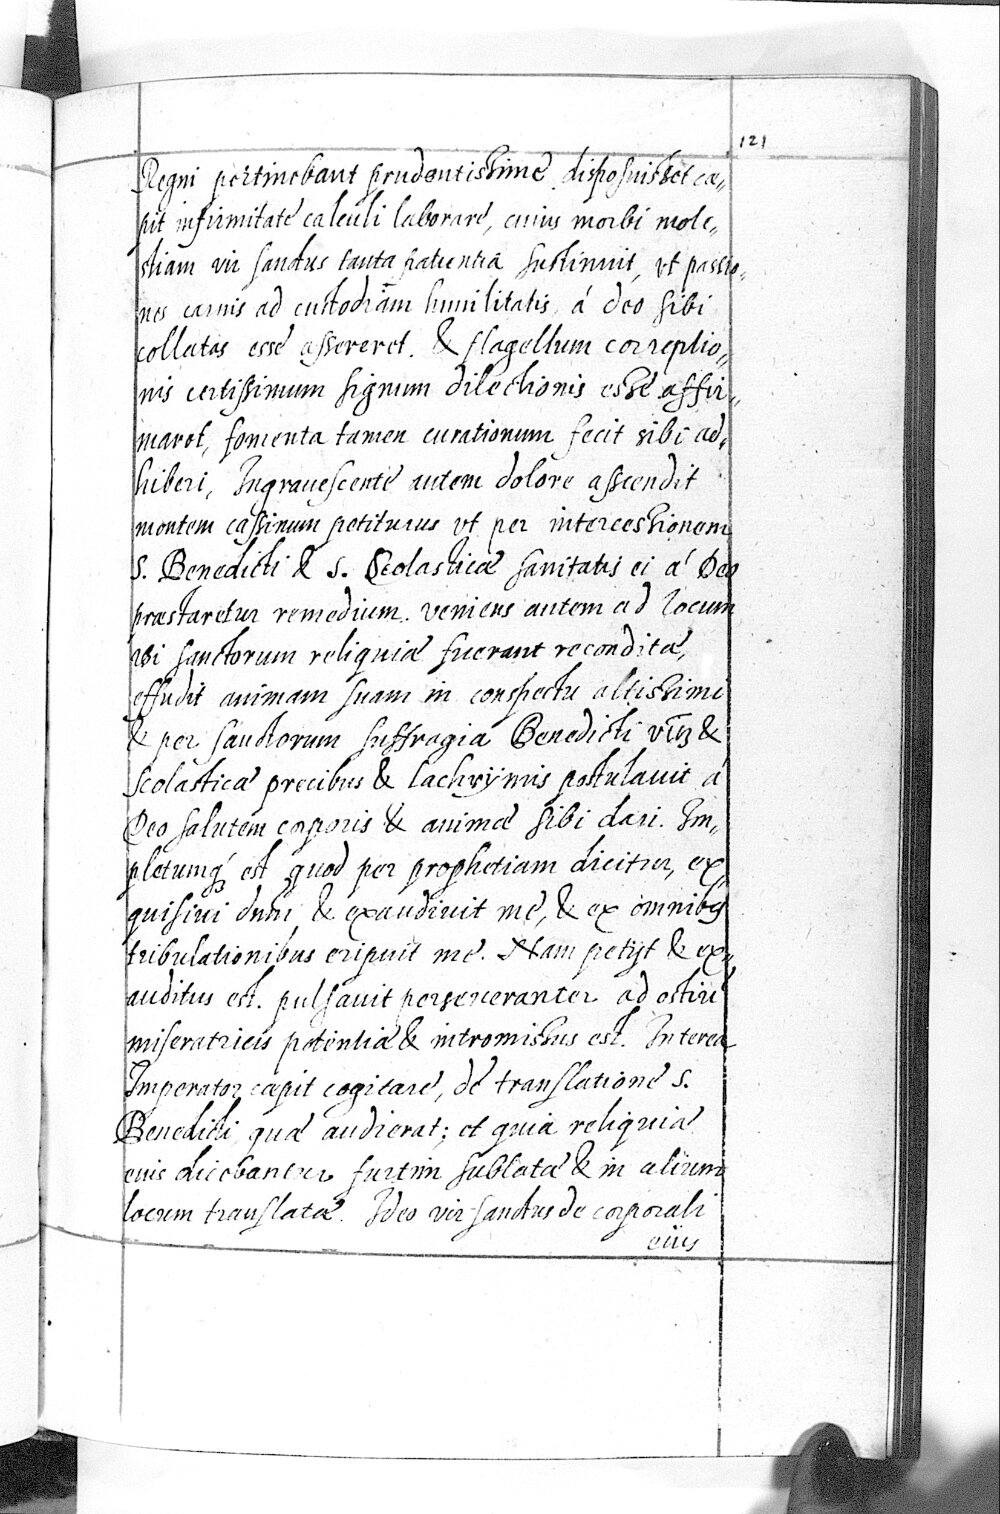 121
Regni pertinebant prudentissimè disposuisset cæ„
pit infirmitate calculi laborare, cuius morbi mole„
stiam vir sanctus tanta patientia sustinuit, vt passio„
nes carnis ad custodiam humilitatis, á deo sibi
collatas esse assereret. & flagellum correptio„
nis certissimum signum dilectionis esse affir„
maret, fomenta tamen curationum fecit sibi ad„
hiberi, Ingrauescente autem dolore asscendit
montem cassinum petiturus vt per intercessionem
S. Benedicti & S. Scolasticæ sanitatis ei á Deo
præstaretur remedium. veniens autem ad locum
vbi sanctorum reliquiæ fuerant reconditæ,
effudit animam suam in conspectu altissimi
& per sanctorum suffragia Benedicti &
Scolasticæ precibus & lachrÿmis postulauit á
Deo salutem corporis & animæ sibi dari. Im„
pletumq́ est quod per prophetiam dicitur, ex„
quisiui dnm̄, & exaudiuit me, & ex omnibus
tribulationibus eripuit me. Nam petijt & ex„
auditus est. pulsauit perseueranter ad ostiū
miseratricis potentiæ & intromissus est. Interea
Imperator cæpit cogitare, de translatione S.
Benedicti, quæ audierat; et quia reliquiæ
eius dicebantur furtim sublatæ & in alium
locum translatæ. Ideo vir sanctus de corporali
eius